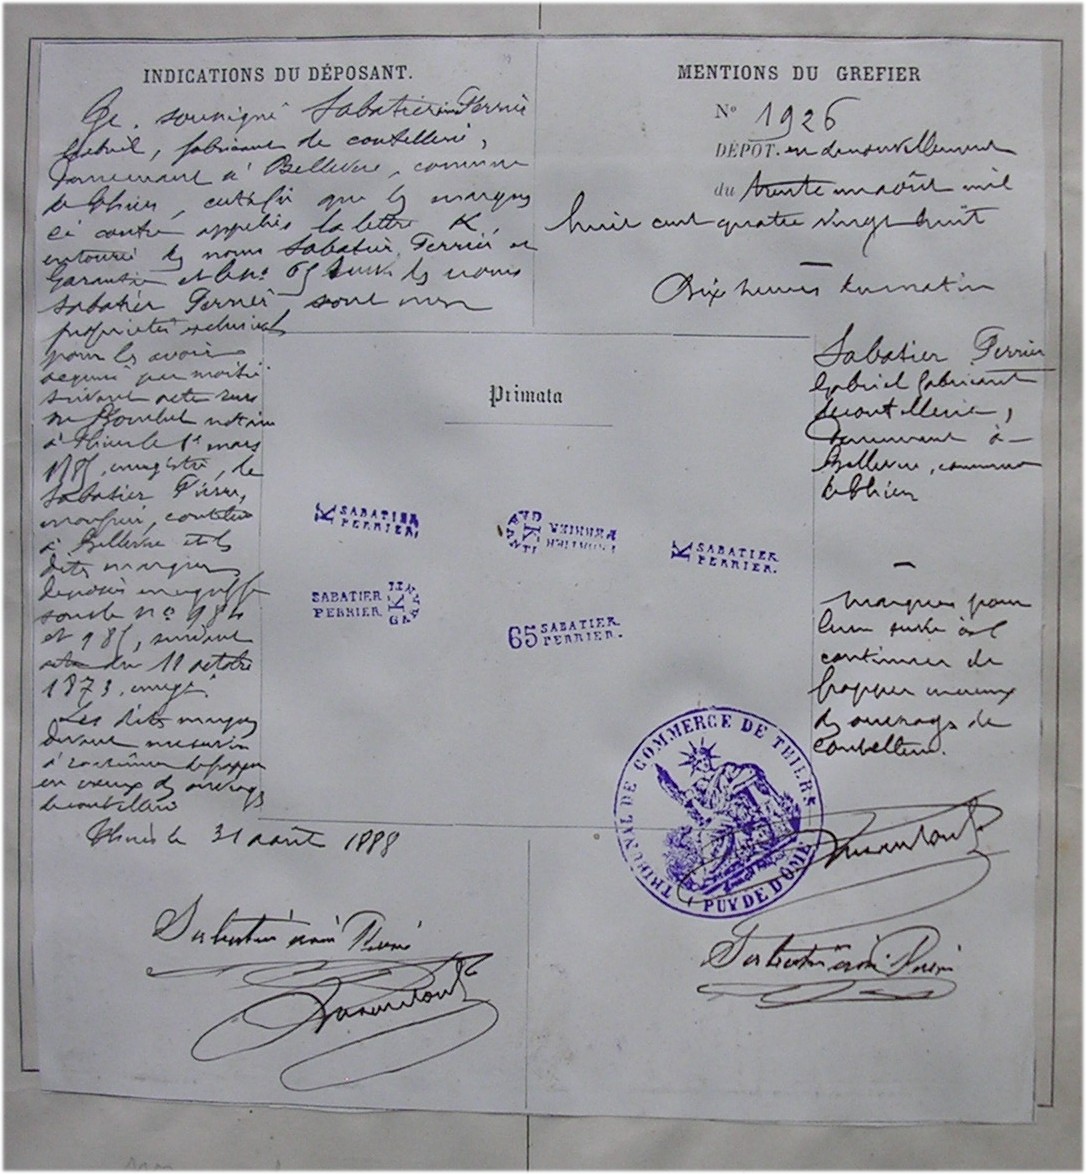 INDICATIONS DU DÉPOSANT.
Je soussigné Sabatier Perrier
Gabriel, fabricant de coutellerie,
demeurant à Bellevue, commune
de Thiers, certifie que les marques
ci contre appelées la lettre K
entouré des noms Sabatier Perrier et
Garantie et le No 65 suivi des noms
Sabatier Perrier sont mon
propriété exclusive
pour les avoir
acquis par moitié
suivant acte reçu
me notaire
à Thiers le 1er mars
enregistré, de
Sabatier Pierre,
mon frère, coutelier
à Bellevue et les
dites marques
déposées au greffe
sous le no 984
et 985, suivant
acte du 11 octobre
1873, enregé.
Les dites marques
devant me servir
à continuer de frapper
en creux des ouvrages
de coutellerie
Thiers le 31 août 1888
Sabatier Perrier
MENTIONS DU GREFIER
No 1926
DÉPÔT. en renouvellement
du trente un août mil
huit cent quatre vingt huit
Dix heures du matin
Primata
K SABATIER
PERRIER.
GARANTI K SABATIER
PERRIER
K SABATIER
PERRIER.
SABATIER
PERRIER K GARANTI
65 SABATIER
PERRIER.
Sabatier Perrier
Gabriel fabricant
de coutellerie,
demeurant à
Bellevue, commune
de Thiers
marques pour
leur servir à
continuer de
frapper en creux
des ouvrages de
coutellerie.
TRIBUNAL DE COMMERCE DE THIERS
PUY DE DÔME
Sabatier Perrier